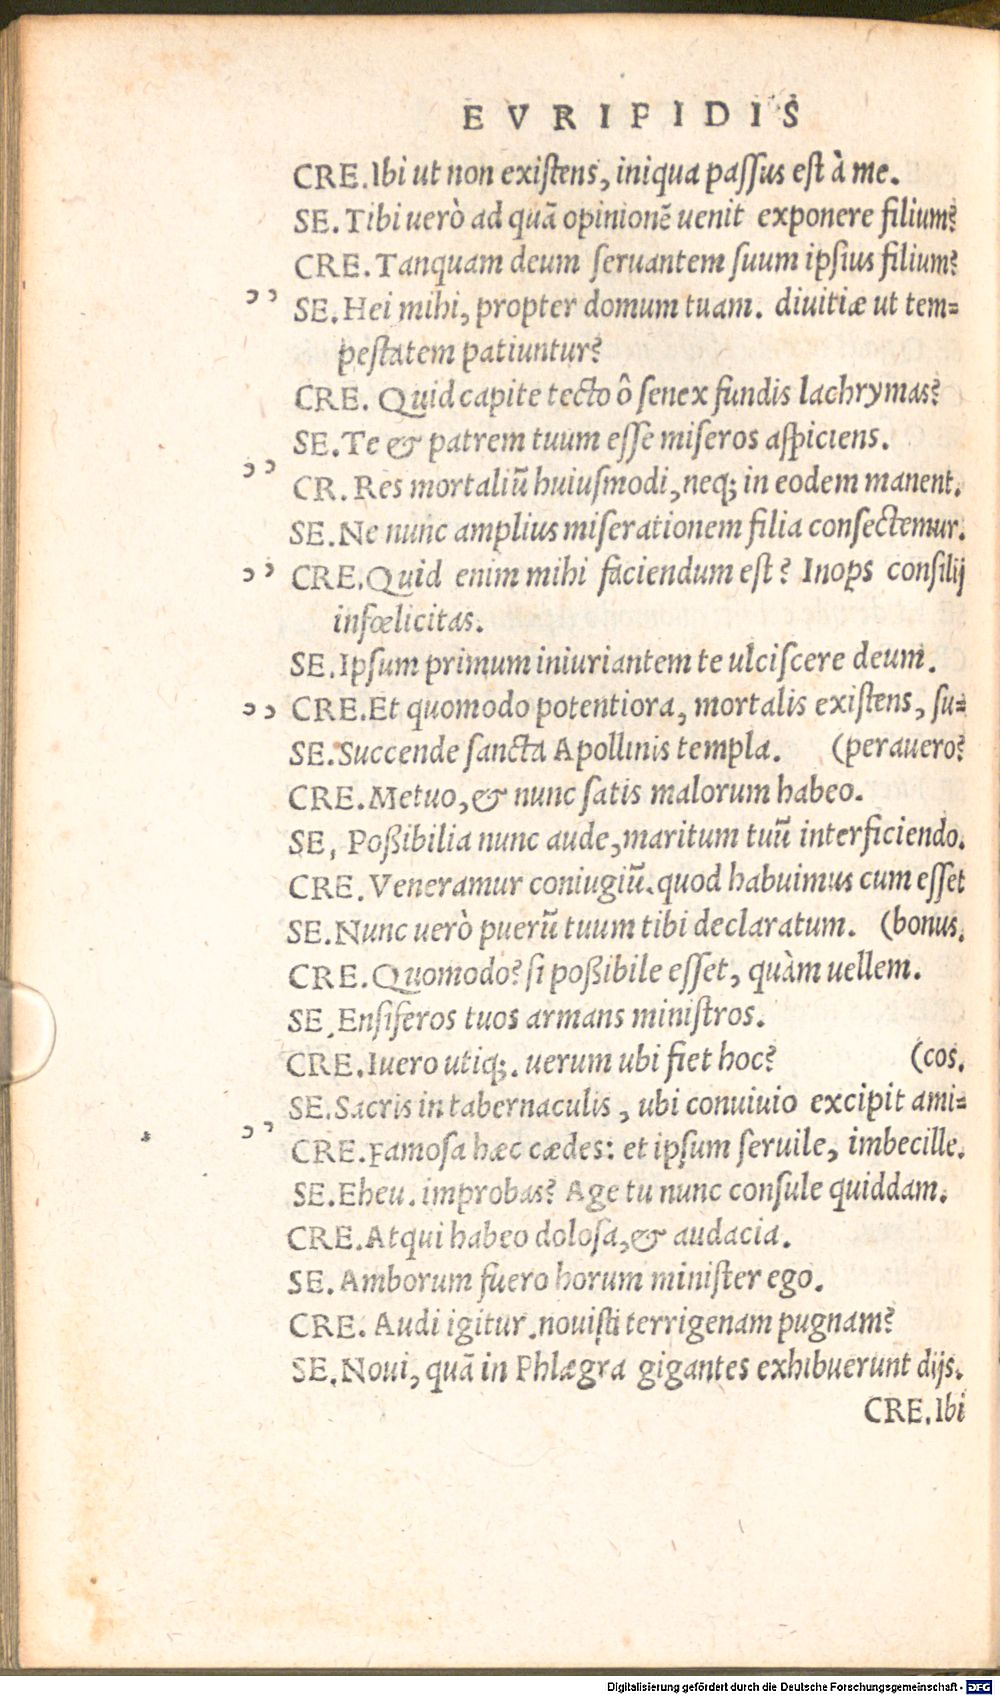 EVRIPIDIS
CRE. Ibi ut non existens, iniqua passus est à me.
SE. Tibi uerò ad quā opinionē uenit exponere filium?
CRE. Tanquam deum seruantem suum ipsius filium?
„ SE. Hei mihi, propter domum tuam. diuitiæ ut tem=
pestatem patiuntur?
CRE. Quid capite tecto ô senex fundis lachrymas?
SE. Te & patrem tuum esse miseros aspiciens.
„ CR. Res mortaliū huiusmodi, neq; in eodem manent.
SE. Ne nunc amplius miserationem filia consectemur.
„ CRE. Quid enim mihi faciendum est? Inops consilij
infœlicitas.
SE. Ipsum primum iniuriantem te ulciscere deum.
„ CRE. Et quomodo potentiora, mortalis existens, su=
SE. Succende sancta Apollinis templa. (perauero?
CRE. Metuo, & nunc satis malorum habeo.
SE. Poßibilia nunc aude, maritum tuū interficiendo.
CRE. Veneramur coniugiū. quod habuimus cum esset
SE. Nunc uerò puerū tuum tibi declaratum. (bonus.
CRE. Quomodo? si poßibile esset, quàm uellem.
SE. Ensiferos tuos armans ministros.
CRE. Iuero utiq;. uerum ubi fiet hoc? (cos.
SE. Sacris in tabernaculis, ubi conuiuio excipit ami=
„ CRE. Famosa hæc cædes: et ipsum seruile, imbecille.
SE. Eheu. improbas? Age tu nunc consule quiddam.
CRE. Atqui habeo dolosa, & audacia.
SE. Amborum fuero horum minister ego.
CRE. Audi igitur. nouisti terrigenam pugnam?
SE. Noui, quā in Phlægra gigantes exhibuerunt dijs.
CRE. Ibi
Digitalisierung gefördert durch die Deutsche Forschungsgemeinschaft - DFG